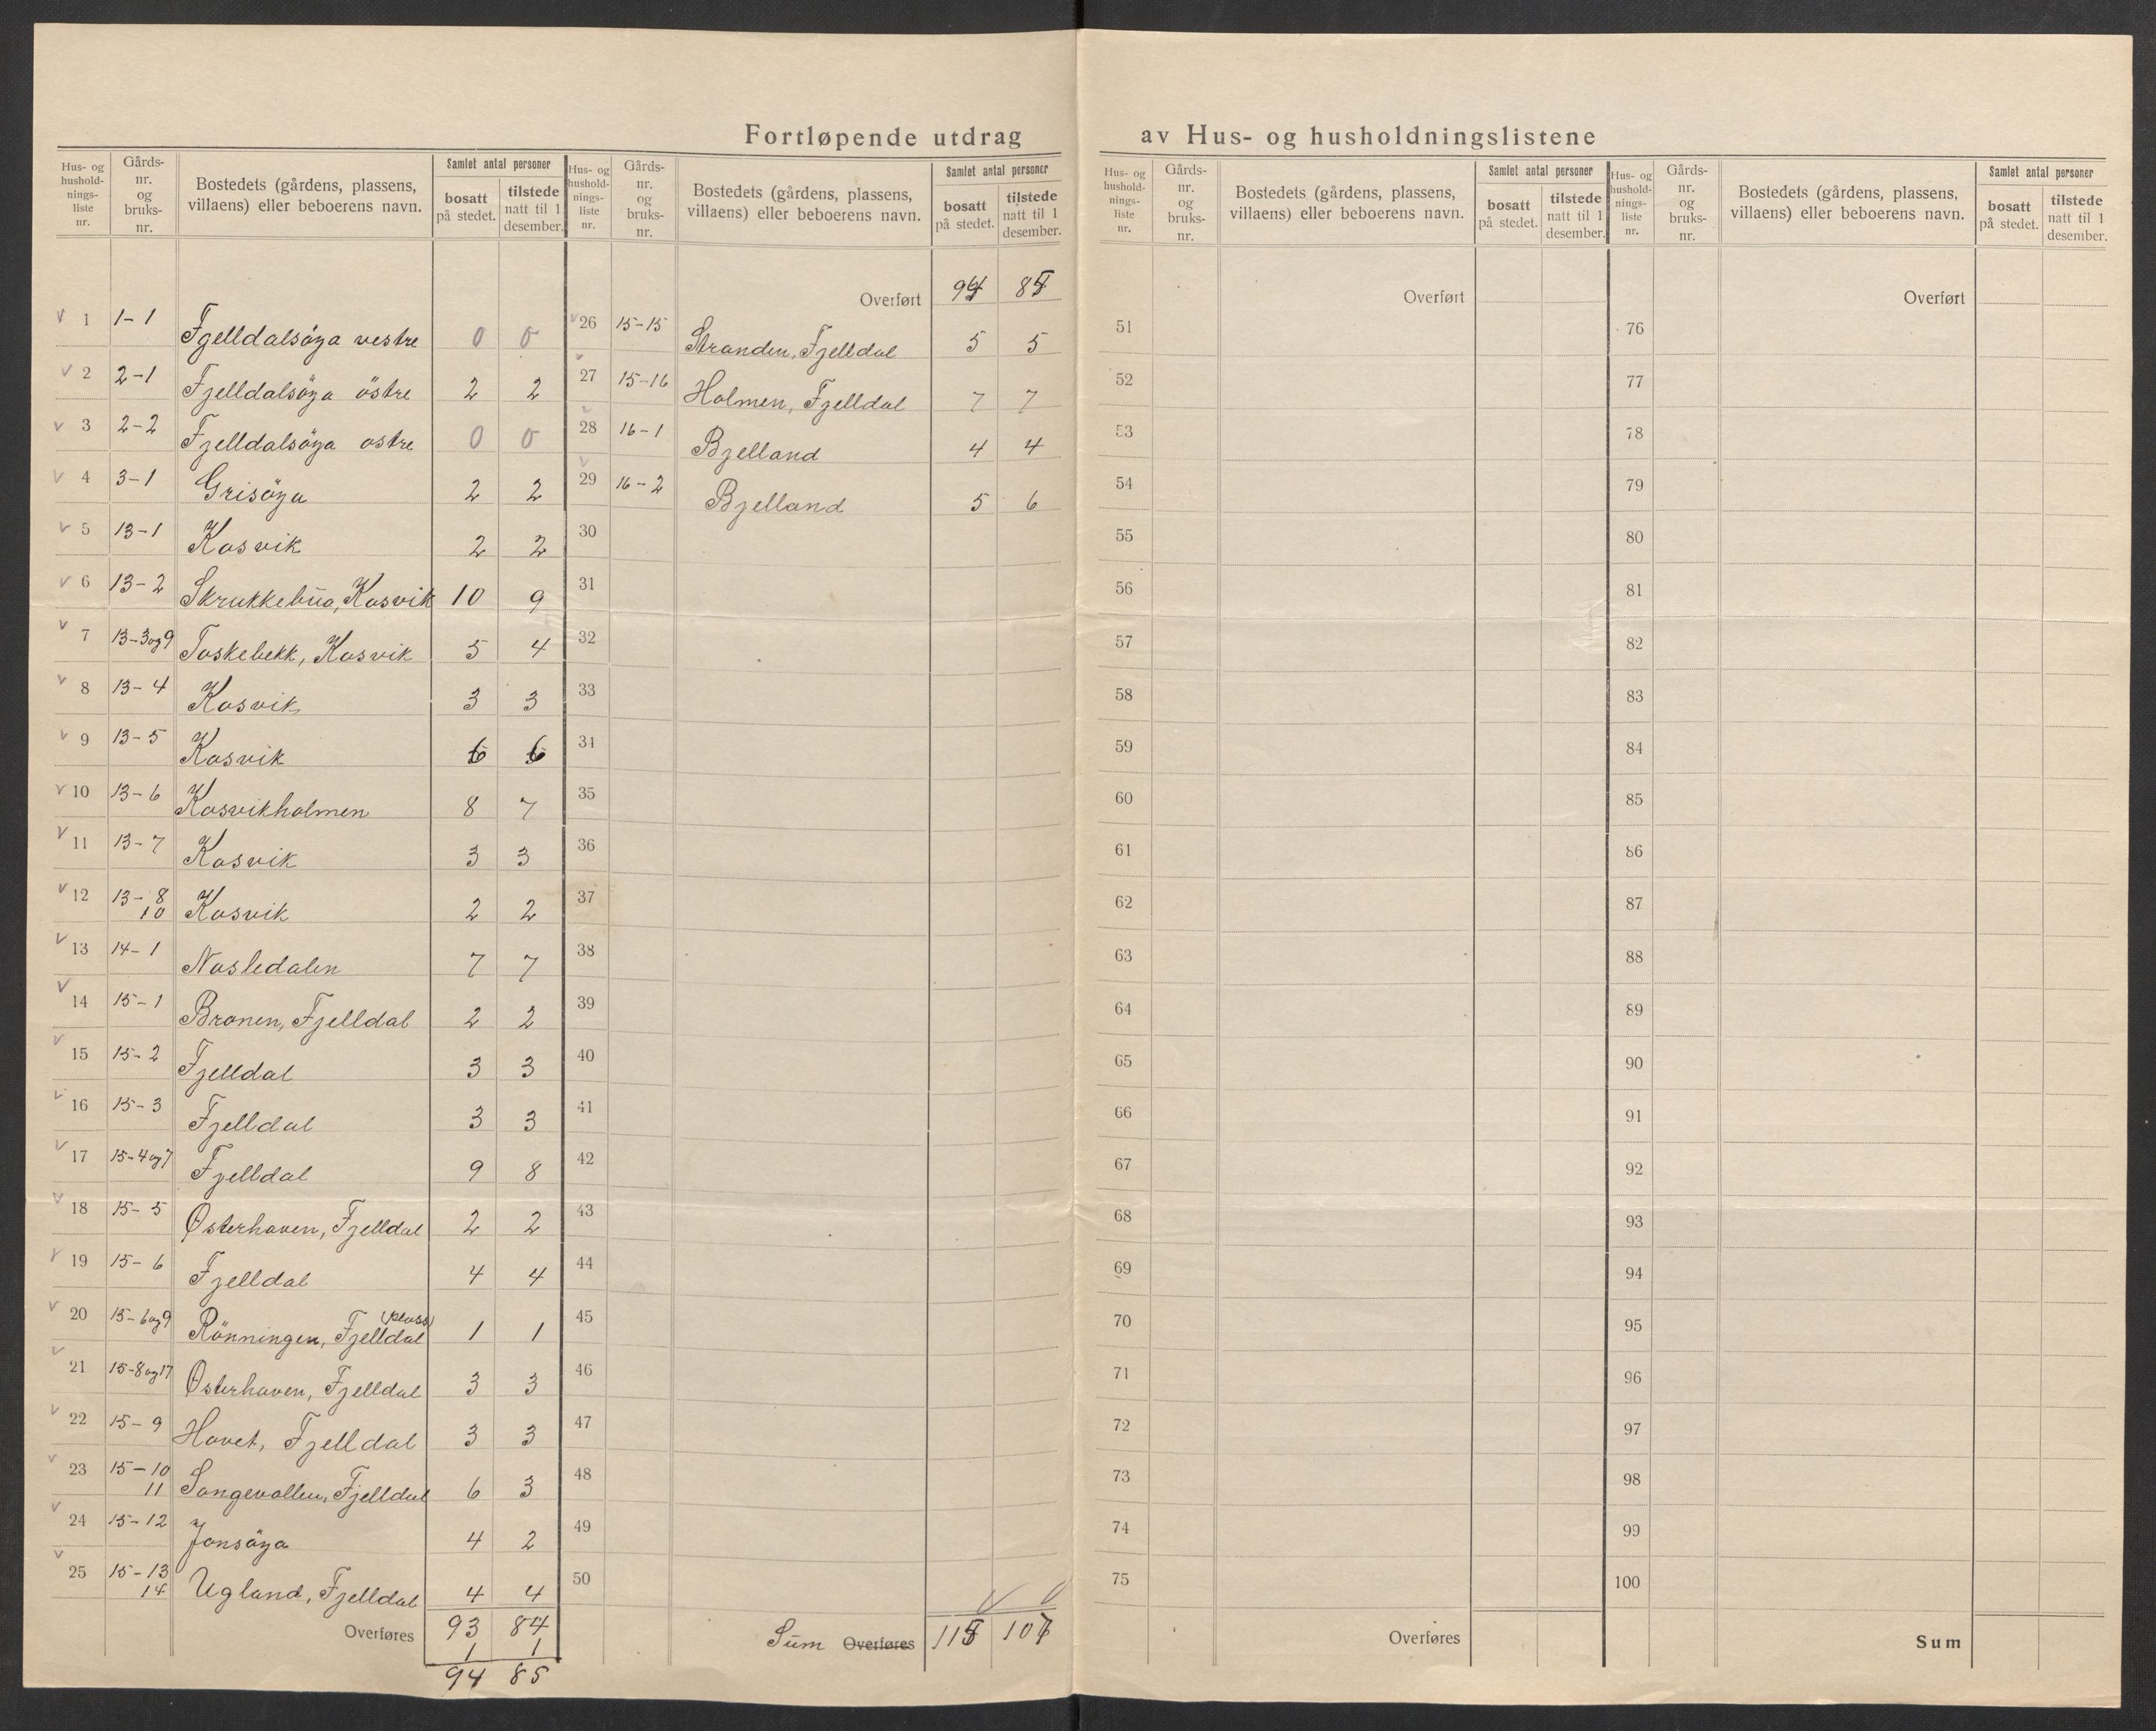 Fortløpende utdrag av Hus- og husholdningslistene
Hus- og husholdningsliste nr. Gårds-nr. og bruks-nr. Bostedets (gårdens, plassens, villaens) eller beboerens navn. Samlet antal personer bosatt på stedet. tilstede natt til 1 desember.
v 1 1-1 Fjelldalsöya vestre 0 0
v 2 2-1 Fjelldalsöya östre 2 2
v 3 2-2 Fjelldalsöya ostre 0 0
v 4 3-1 Grisöya 2 2
v 5 13-1 Kosvik 2 2
v 6 13-2 Skrukkebua, Kosvik 10 9
v 7 13-3og9 Toskebekk, Kosvik 5 4
v 8 13-4 Kosvik 3 3
v 9 13-5 Kosvik 6 6
v 10 13-6 Kosvikholmen 8 7
v 11 13-7 Kosvik 3 3
v 12 13-8 10 Kosvik 2 2
v 13 14-1 Nosledalen 7 7
v 14 15-1 Bronen, Fjelldal 2 2
v 15 15-2 Fjelldal 3 3
v 16 15-3 Fjelldal 3 3
v 17 15-4og7 Fjelldal 9 8
v 18 15-5 Østerhaven, Fjelldal 2 2
v 19 15-6 Fjelldal 4 4
v 20 15-6og9 Rönningen, Fjelldal (plass) 1 1
v 21 15-8og17 Østerhaven, Fjelldal 3 3
v 22 15-9 Hovet, Fjelldal 3 3
v 23 15-10 11 Songevollen, Fjelldal 6 3
v 24 15-12 Jonsöya 4 2
v 25 15-13 14 Ugland, Fjelldal 4 4
Overføres 93 84
1 1
94 85
Hus- og husholdningsliste nr. Gårds-nr. og bruks-nr. Bostedets (gårdens, plassens, villaens) eller beboerens navn. Samlet antal personer bosatt på stedet. tilstede natt til 1 desember.
Overført 94 85
v 26 15-15 Stranden, Fjelldal 5 5
v 27 15-16 Holmen, Fjelldal 7 7
v 28 16-1 Bjelland 4 4
v 29 16-2 Bjelland 5 6
30
31
32
33
34
35
36
37
38
39
40
41
42
43
44
45
46
47
48
49
50
Sum Overføres 115 107
Hus- og husholdningsliste nr. Gårds-nr. og bruks-nr. Bostedets (gårdens, plassens, villaens) eller beboerens navn. Samlet antal personer bosatt på stedet. tilstede natt til 1 desember.
Overført
51
52
53
54
55
56
57
58
59
60
61
62
63
64
65
66
67
68
69
70
71
72
73
74
75
Overføres
Hus- og husholdningsliste nr. Gårds-nr. og bruks-nr. Bostedets (gårdens, plassens, villaens) eller beboerens navn. Samlet antal personer bosatt på stedet. tilstede natt til 1 desember.
Overført
76
77
78
79
80
81
82
83
84
85
86
87
88
89
90
91
92
93
94
95
96
97
98
99
100
Sum